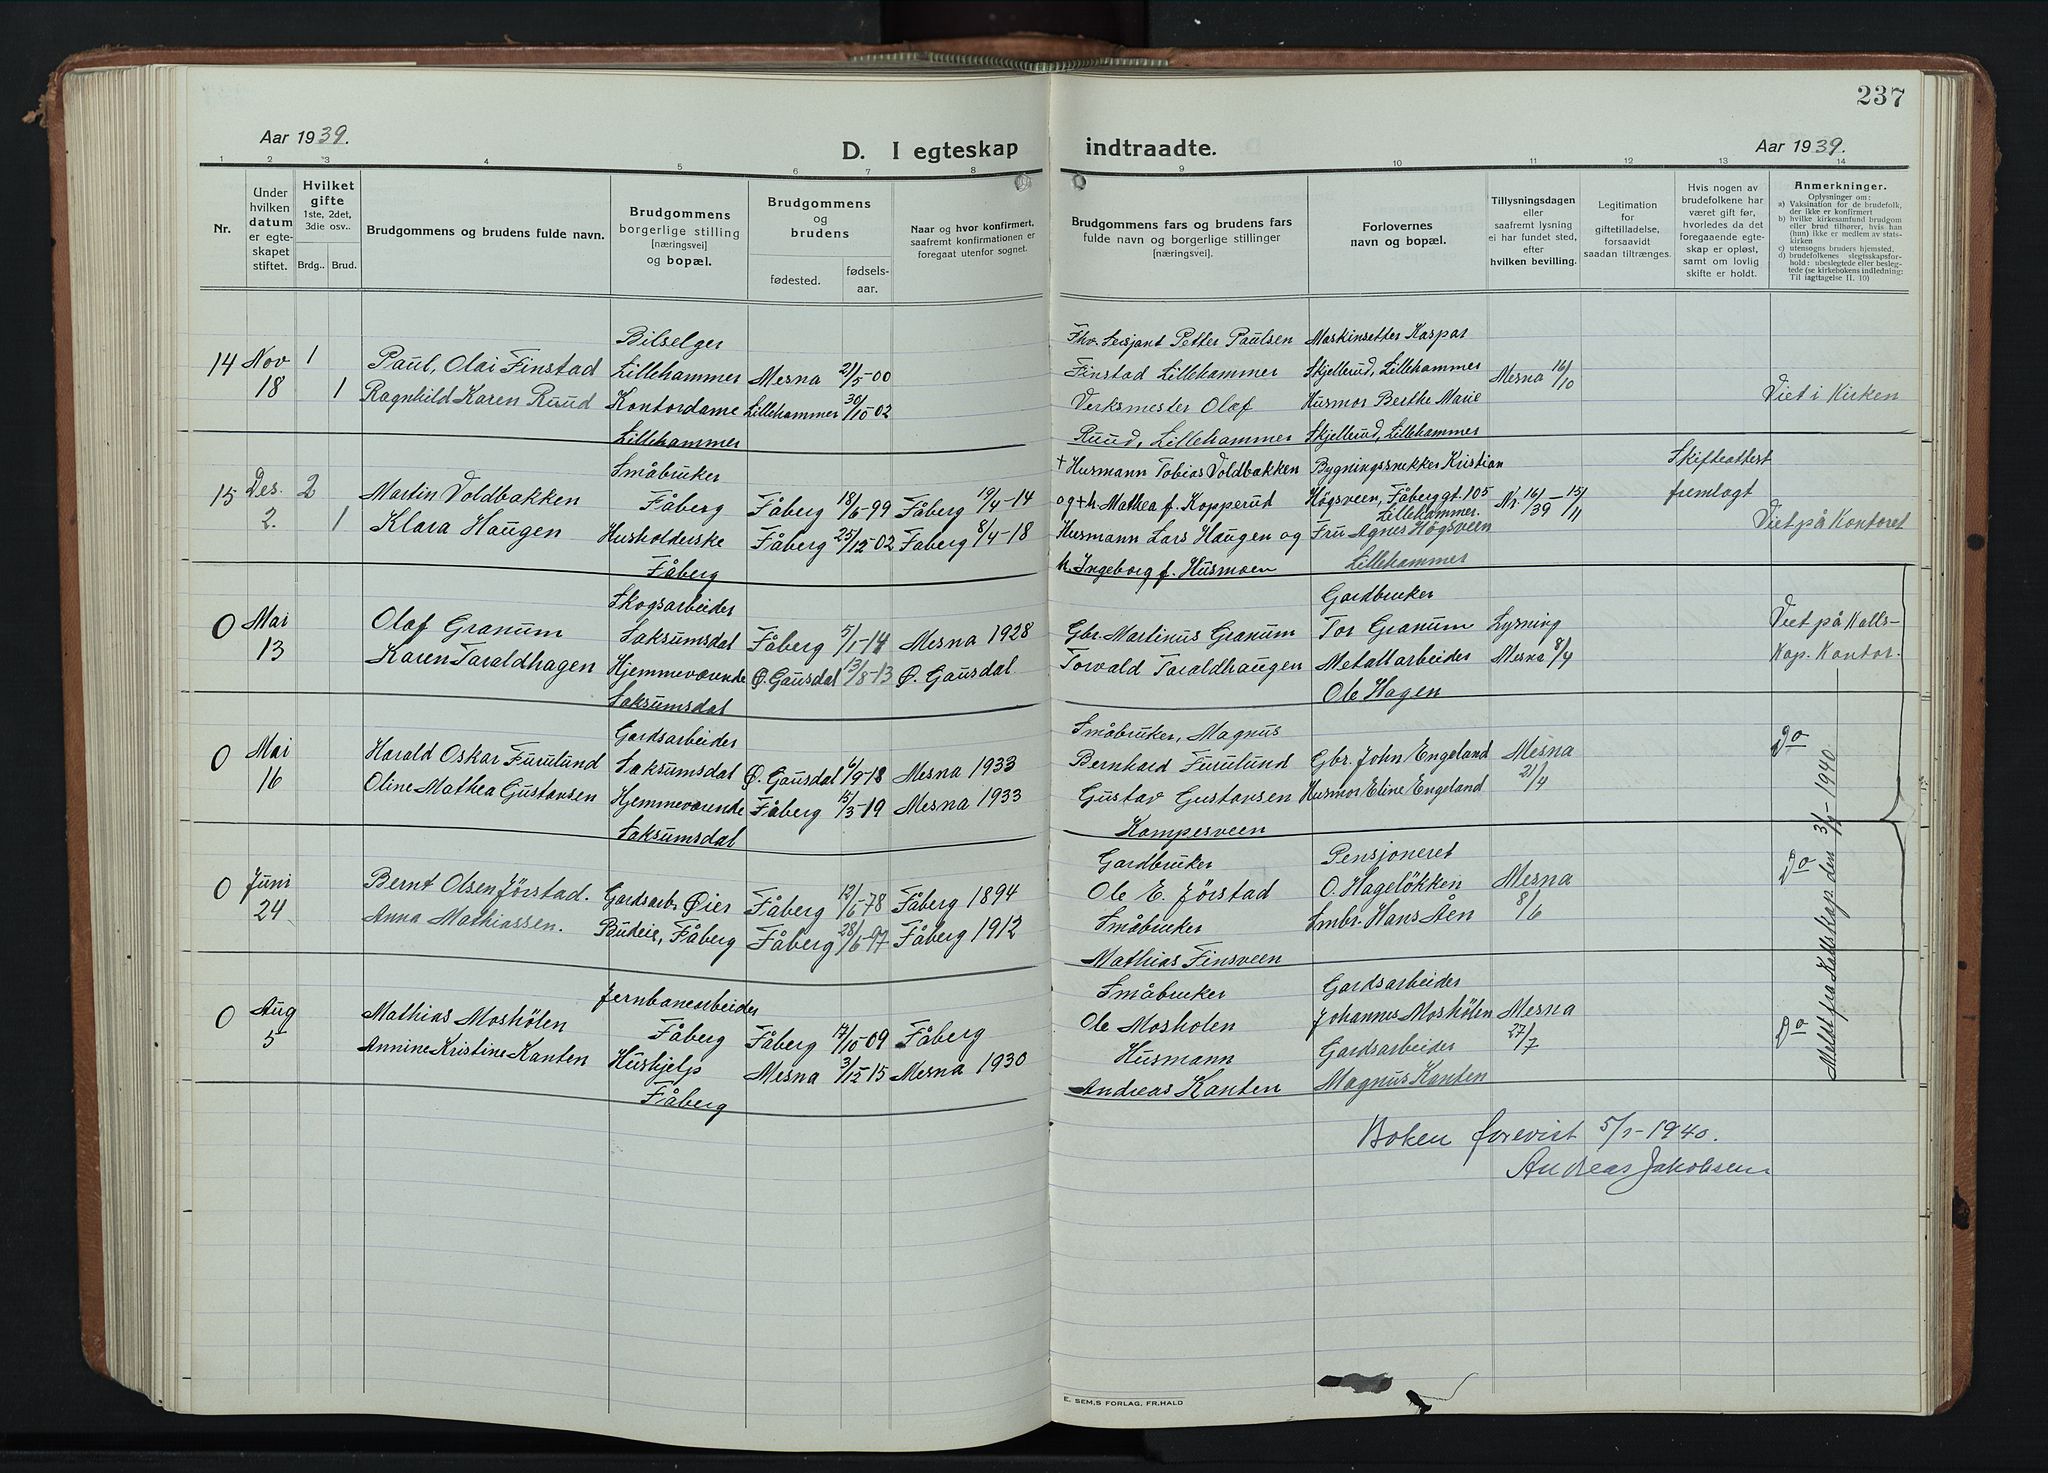 237
Aar 1939.
D. I egteskap indtraadte.
Aar 1939.
1 2 3 4 5 6 7 8 9 10 11 12 13 14
Nr.
Under hvilken datum er egteskapet stiftet.
Hvilket gifte 1ste, 2det, 3die osv..
Brdg.. Brud.
Brudgommens og brudens fulde navn.
Brudgommens borgerlige stilling [næringsvei] og bopæl.
Brudgommens og brudens
fødested.
fødselsaar.
Naar og hvor konfirmert, saafremt konfirmationen er foregaat utenfor sognet.
Brudgommens fars og brudens fars fulde navn og borgerlige stillinger [næringsvei].
Forlovernes navn og bopæl.
Tillysningsdagen eller saafremt lysning ei har fundet sted, efter hvilken bevilling.
Legitimation for giftetilladelse, forsaavidt saadan tiltrænges.
Hvis nogen av brudefolkene har været gift før, hvorledes da det foregaaende egteskap er opløst, samt om lovlig skifte er holdt.
Anmerkninger.
Oplysninger om:
a) Vaksination for de brudefolk, der ikke er konfirmert
b) hvilke kirkesamfund brudgom eller brud tilhører, hvis han (hun) ikke er medlem av statskirken
c) utensogns bruders hjemsted.
d) brudefolkenes slegtsskapsforhold: ubeslegtede eller beslegtede (se kirkebokens indledning: Til iagttagelse II. 10)
14 Nov 18 1 1
Paul, Olai Finstad
Ragnhild Karen Ruud
Bilselger
Lillehammer
Kontordame
Lillehammer
Mesna 21/5-00
Lillehammer 30/10-02
Fhv. Sersjant Petter Paulsen
Finstad Lillehammer
Verksmester Olaf
Ruud, Lillehammer
Maskinsetter Kaspar
Skjellerud, Lillehammer
Husmor Berthe Marie
Skjellerud, Lillehammer
Mesna 16/10
Viet i Kirken
15 Des. 2. 2 1
Martin Voldbakken
Klara Haugen
Småbruker
Fåberg
Husholderske
Fåberg
Fåberg 18/6-99 Fåberg 19/4-14
Fåberg 23/12-02 Faberg 8/4-18
+ Husmann Tobias Voldbakken
og + h. Mathea f. Kopperud
Husmann Lars Haugen og
h. Ingeborg f. Husmoen
Bygningssnekker Kristian
Högsveen, Fåberggt. 105
Lillehammer.
Fru Agnes Högsveen
Lillehammer
Nr 16/39 - 15/11
Skifteattest
fremlagt
Viet på Kontoret
0 Mai 13
Olaf Granum
Karen Taraldhagen
Skogsarbeider
Saksumsdal
Hjemmeværende
Saksumsdal
Fåberg 5/1-14 Mesna 1928
Ø. Gausdal 13/8-13 Ø. Gausdal
Gbr. Martinus Granum
Torvald Taraldhaugen
Gardbruker
Tor Granum
Metallarbeider
Ole Hagen
Lysning
Mesna 8/4
Viet på Kalls-
Kap. Kontor.
0 Mai 16
Harald Oskar Furulund
Oline Mathea Gustavsen
Gardsarbeider
Saksumsdal
Hjemmeværende
Saksumsdal
Ø. Gausdal 6/9-18 Mesna 1933
Fåberg 15/3-19 Mesna 1933
Småbruker, Magnus
Bernhard Furulund
Gustav Gustavsen
Kampesveen
Gbr. John Engeland
Husmor Eline Engeland
Mesna
21/4
Do
0 Juni 24
Bernt Olsen Jörstad.
Anna Mathiassen.
Gardsarb. Øier
Budeie, Fåberg
Fåberg 12/6-78 Fåberg 1894
Fåberg 28/6-97 Fåberg 1912
Gardbruker
Ole E. Jörstad
Småbruker
Mathias Finsveen
Pensjoneret
O. Hagelökken
Smbr. Hans Åen
Mesna
8/6
Do
0 Aug 5
Mathias Moshölen
Annine Kristine Kanten
Jernbanearbeider
Fåberg
Hushjelp
Fåberg
Fåberg 17/10-09 Fåberg
Mesna 3/12-15 Mesna 1930
Småbruker
Ole Mosholen
Husmann
Andreas Kanten
Gardsarbeider
Johannes Moshölen
Gardsarbeider
Magnus Kanten
Mesna
27/7
Do
Meldt fra Kallskap. den 3/1-1940
Boken forevist 5/1-1940.
Andreas Jakobsen
E. SEM,S FORLAG, FR.HALD